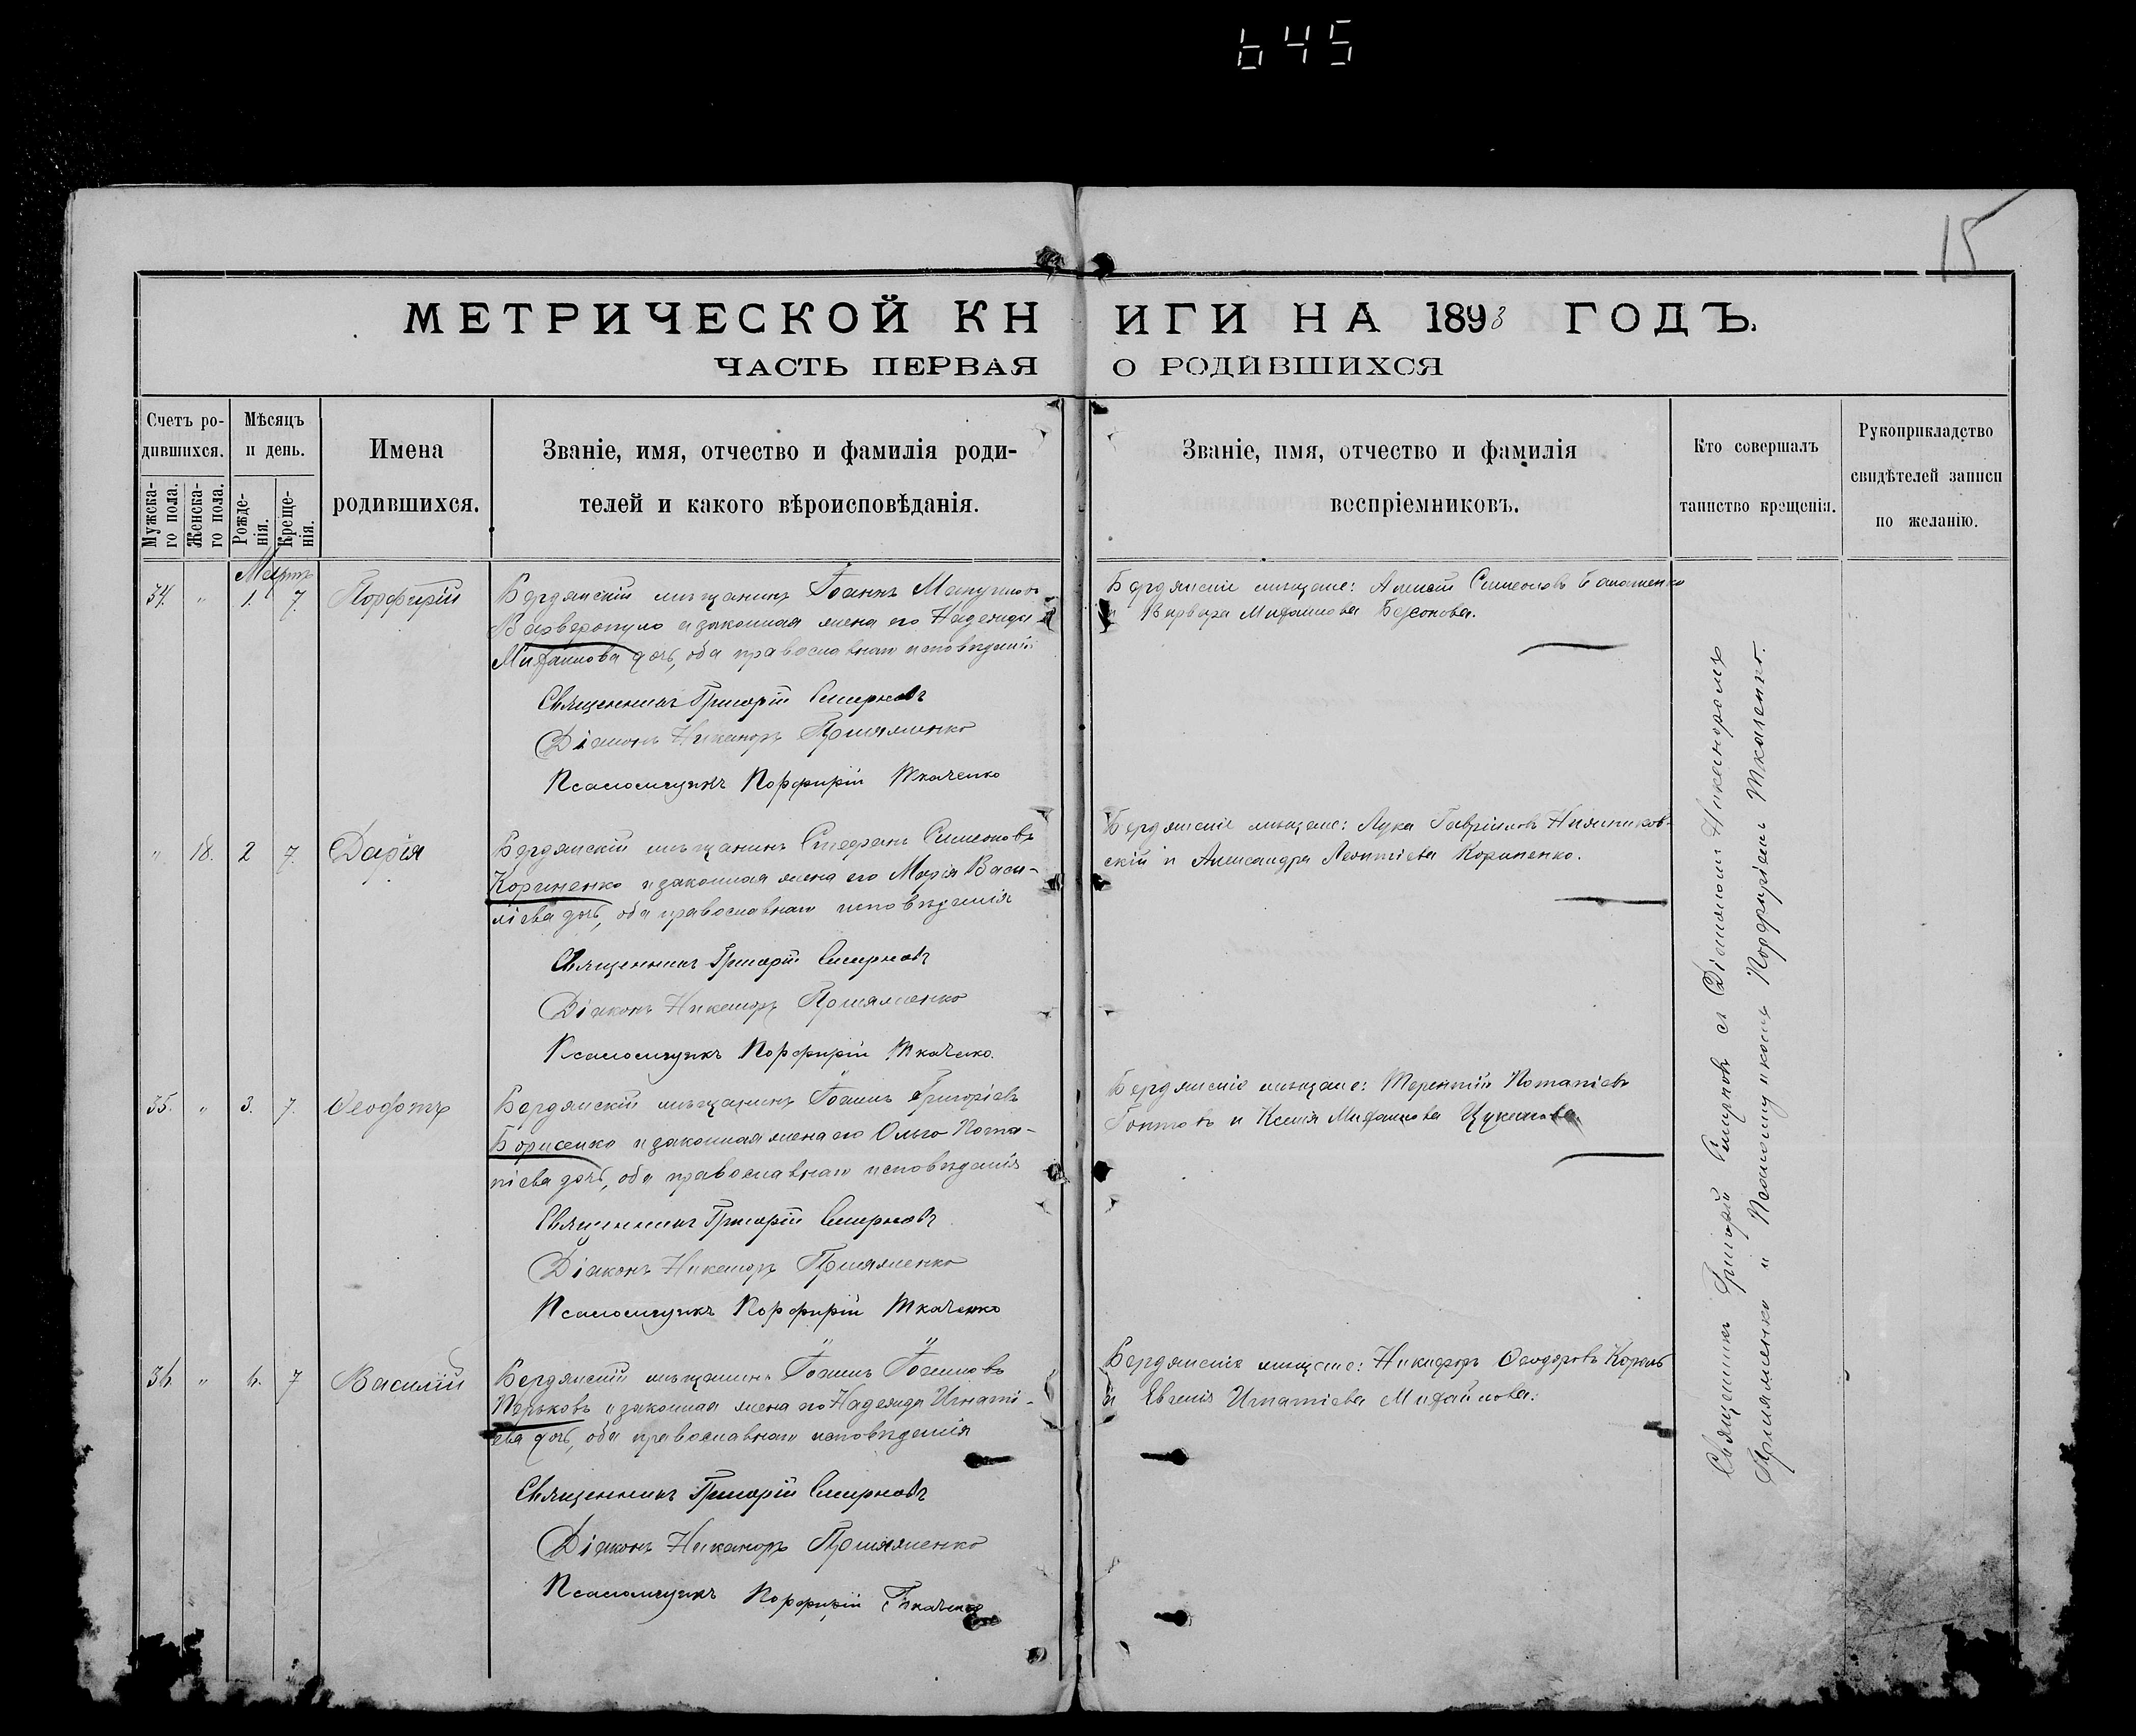 645
15
МЕТРИЧЕСКОЙ КНИГИ НА 1893 ГОДЪ.
ЧАСТЬ ПЕРВАЯ О РОДИВШИХСЯ
Счетъ ро-
дившихся.
Мужска-
го пола.
Женска-
го пола.
Мѣсяцъ
и день.
Рожде-
нія.
Креще-
нія.
Имена
родившихся.
Званіе, имя, отчество и фамилія роди-
телей и какого вѣроисповѣданія.
Званіе, имя, отчество и фамилія
воспріемниковъ.
Кто совершалъ
таинство крещенія.
Рукоприкладство
свидѣтелей записи
по желанію.
Мартъ
34. " 1. 7. Порфирій
Бердянскій мѣщанинъ Іоаннъ
и законная жена его Надежда
Михаилова дочь, оба православнаго исповѣданія
Священникъ Григорій Смирновъ
Діаконъ Никаноръ
Псаломщикъ Порфирій Ткаченко
Бердянскіе мѣщане: Алексѣй Симеоновъ
и Варвара Михаилова
" 18. 2 7. Дарія
Бердянскій мѣщанинъ Стефанъ Симеоновъ
Кориненко и законная жена его Марія Васи-
ліева дочь, оба православнаго исповѣданія
Священникъ Григорій Смирновъ
Діаконъ Никаноръ
Псаломщикъ Порфирій Ткаченко.
Бердянскіе мѣщане: Лука Гавріиловъ
скій и Александра Леонтіева Кориненко.
35. " 3. 7. Ѳеофотъ
Бердянскій мѣщанинъ Іоаннъ Григоріевъ
Борисенко и законная жена его Ольга Пота-
піева дочь, оба православнаго исповѣданія
Священникъ Григорій Смирновъ
Діаконъ Никаноръ
Псаломщикъ Порфирій Ткаченко
Бердянскіе мѣщане: Терентій Потапіевъ
и Ксенія Михаилова Цуканова.
36. " 4. 7 Василій
Бердянскій мѣщанинъ Іоаннъ Іоанновъ
и законная жена его Надежда Игнаті-
ева дочь, оба православнаго исповѣданія
Священникъ Григорій Смирновъ
Діаконъ Никаноръ
Псаломщикъ Порфирій Ткаченко
Бердянскіе мѣщане: Никифоръ Ѳеодоровъ Король
и Евгенія Игнатіева Михайлова.
Священникъ Григорій Смирновъ съ Діакономъ Никаноромъ
и Псаломщикомъ Порфиріемъ Ткаченко.